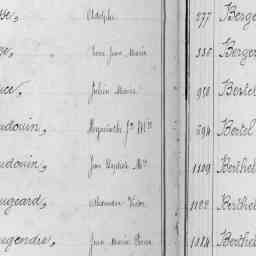 Adolphe 277 Berge
Jean Marie 336 Berger
Julien Marie 950 Bertel
udouin, Hyacinthe 594 Bertel
udouin, Jean Baptiste Mie 1109 Berthel
ugeard, Alexandre Victor 1102 Berthel
ugendre, Jean Marie Pierre 1084 Berthel